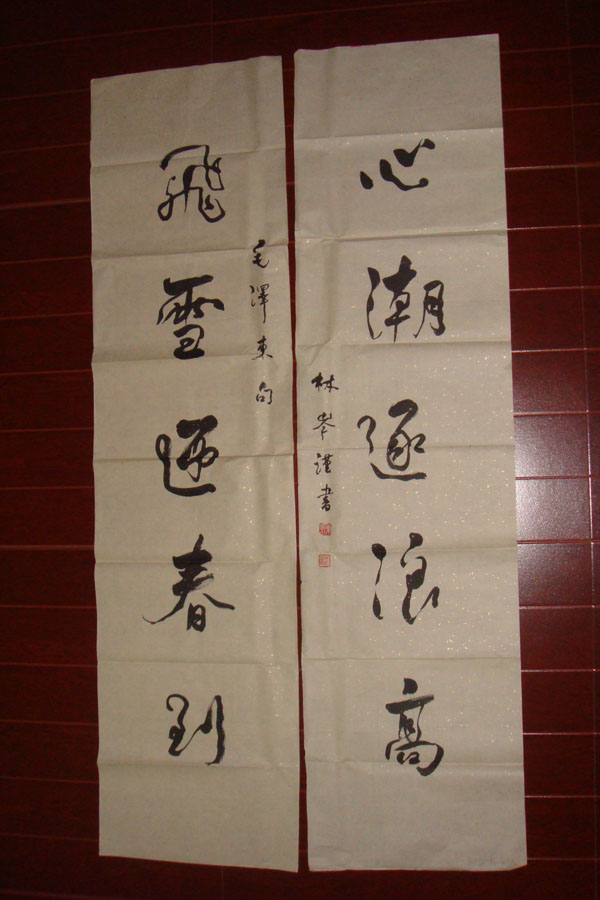 心潮逐浪高
林岑謹書
毛澤東句
飛雪迎春到